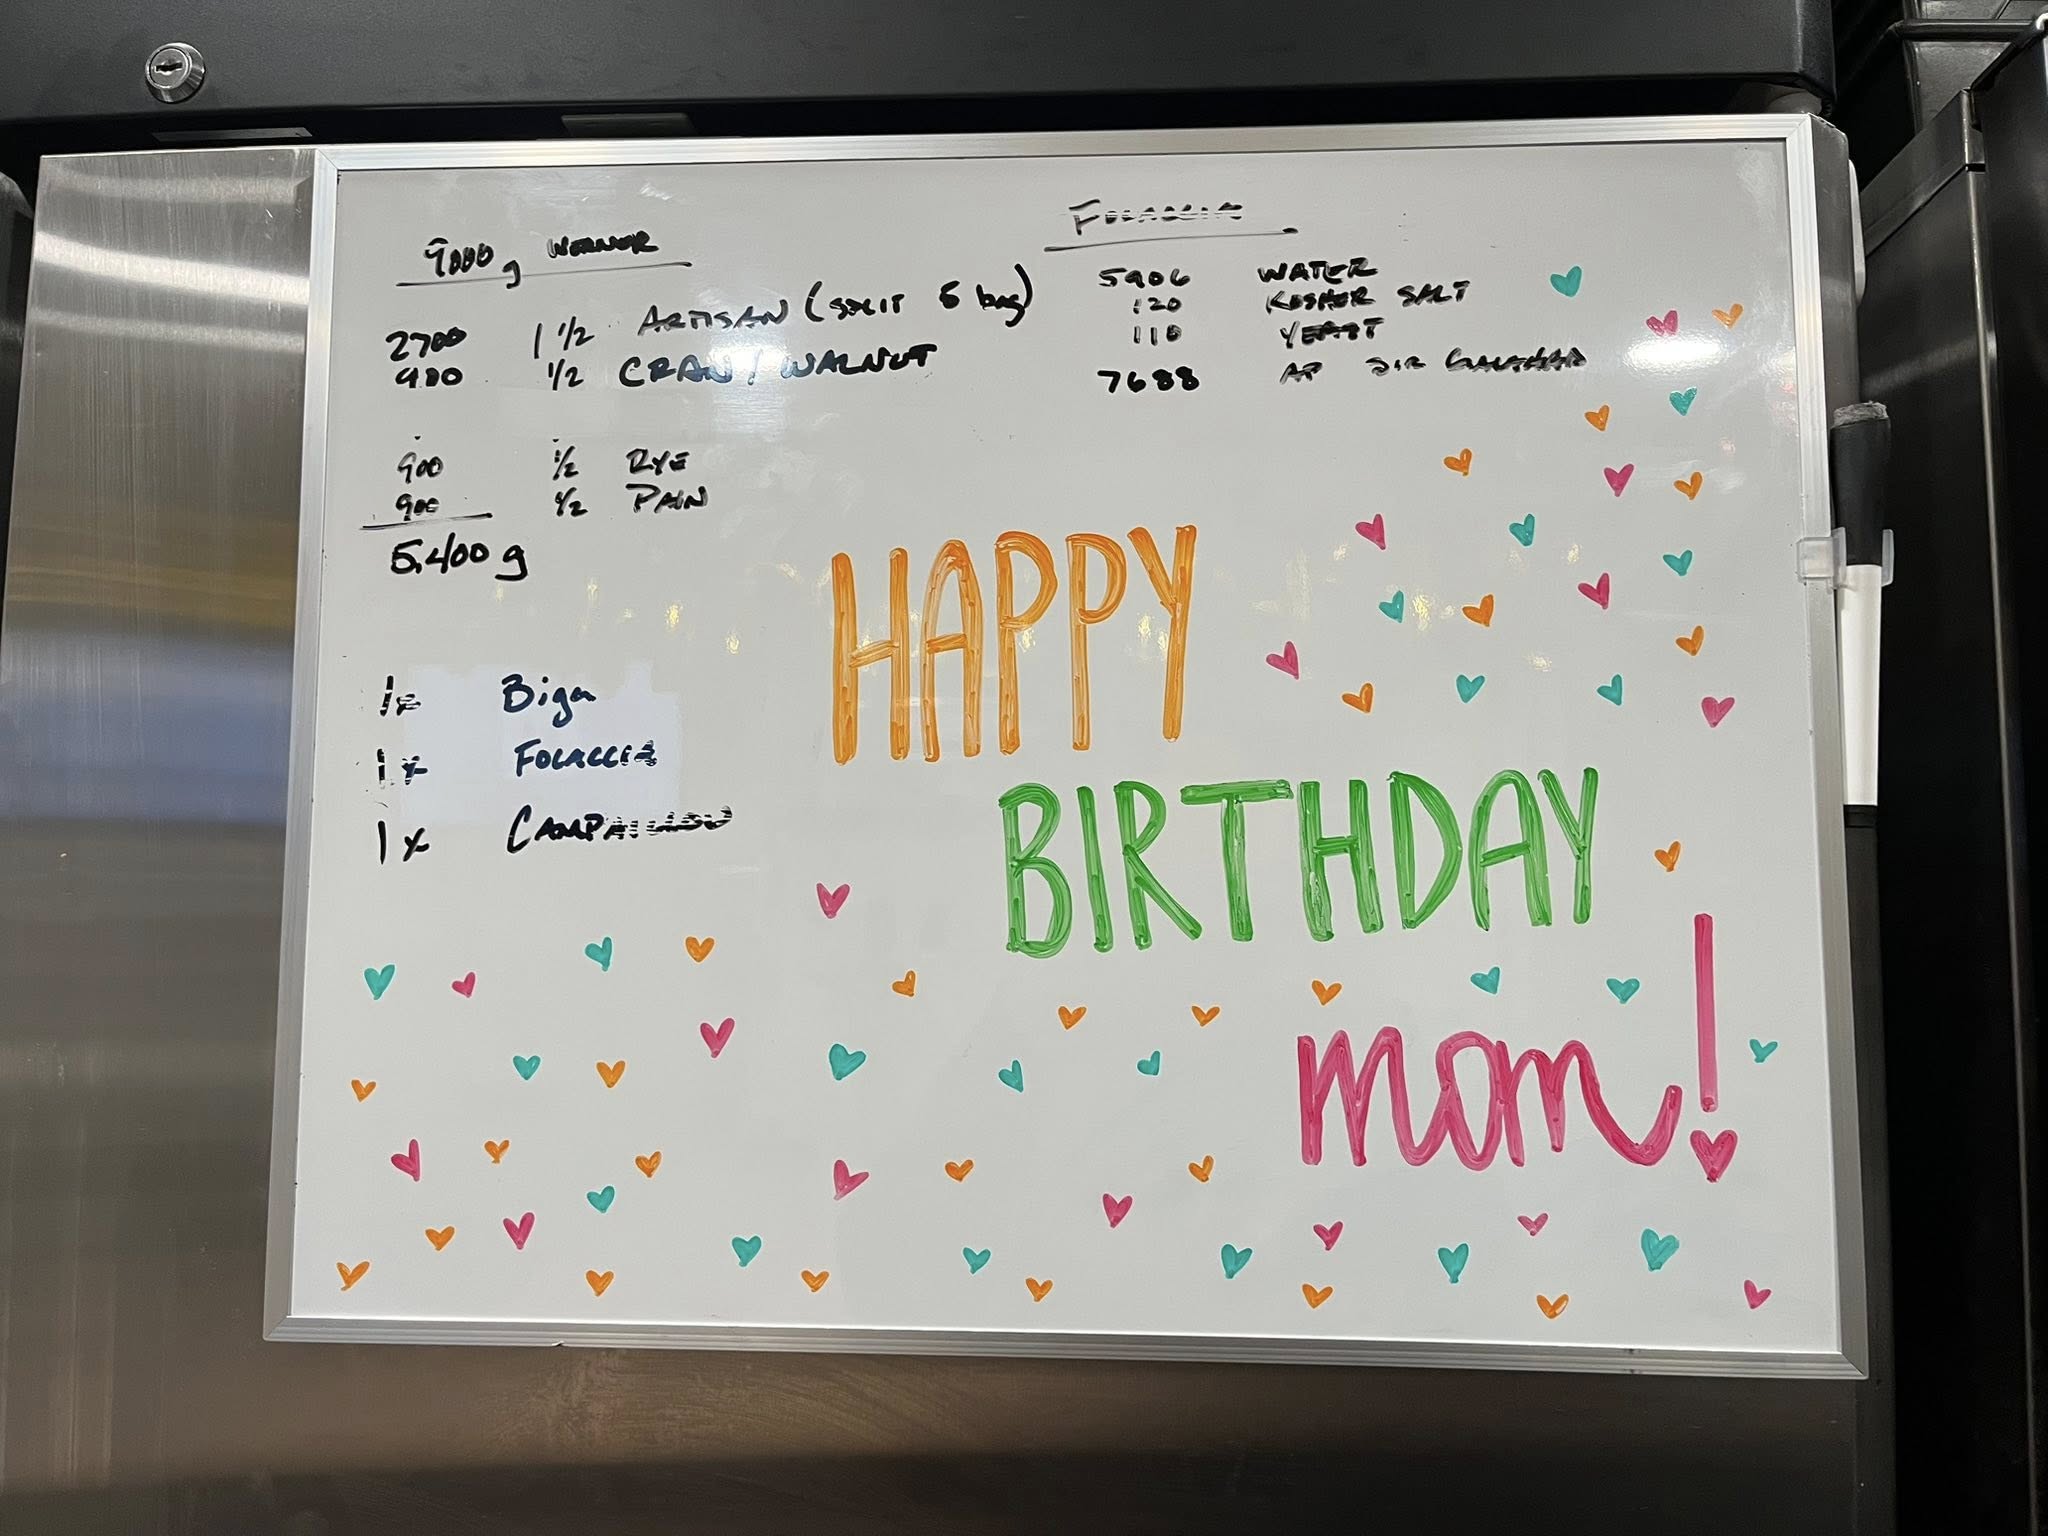 9000 g
2700 1 1/2 ARTISAN (SPLIT 5 bag)
900 1/2 CRAN / WALNUT
900 1/2 RYE
900 1/2 PAIN
5,400 g
FOCACCIA
5906 WATER
120 KOSHER SALT
110 YEAST
7688 AP SIR GALAHAD
1x Biga
1x FOCACCIA
1x
HAPPY
BIRTHDAY
mom!